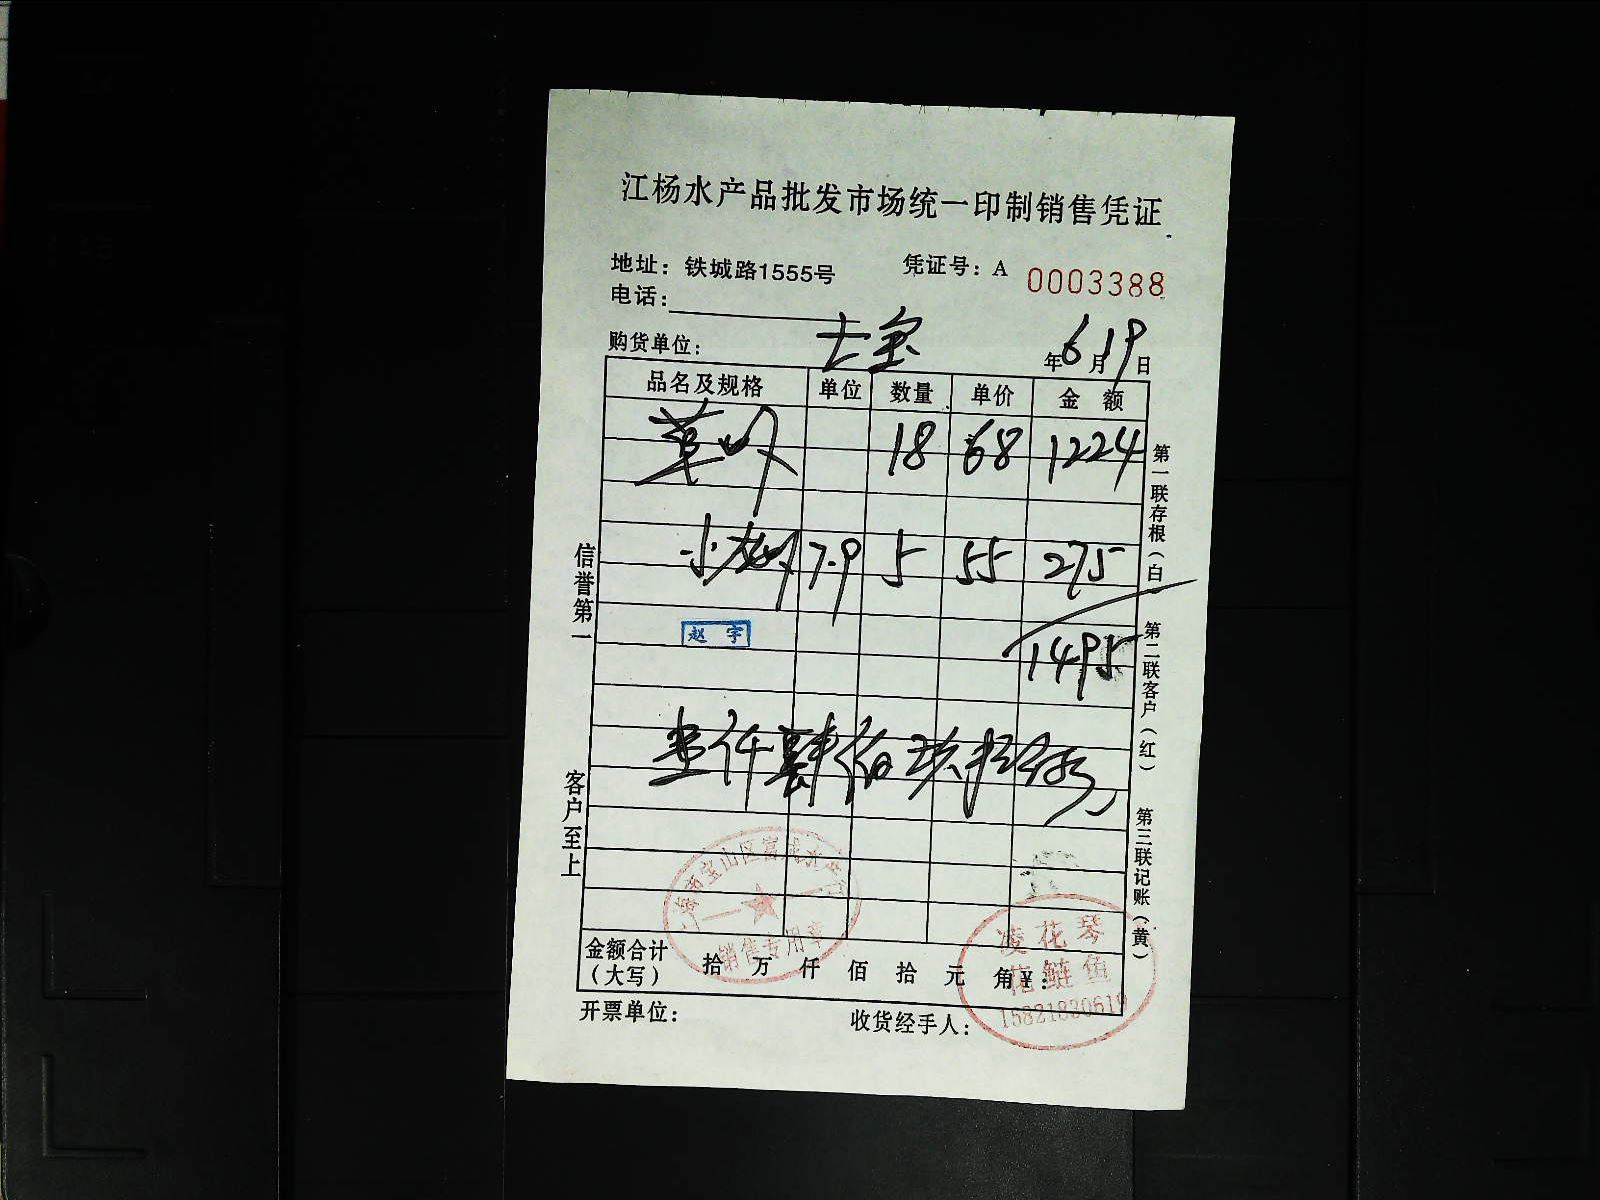 江杨水产品批发市场统一印制销售凭证
地址：铁城路1555号 凭证号：A 0003388
电话：
购货单位： 士宝 年6月19日
品名及规格 单位 数量 单价 金额
草虾 18 68 1224
小龙虾 7.9 5 55 275
赵宇
1495
壹仟肆佰玖拾
金额合计（大写） 拾 万 仟 佰 拾 元 角 ¥：
开票单位： 收货经手人：
信誉第一 客户至上
第一联存根（白） 第二联客户（红） 第三联记账（黄）
上海市宝山区
销售专用章
凌花琴
花鲢鱼
15821820619